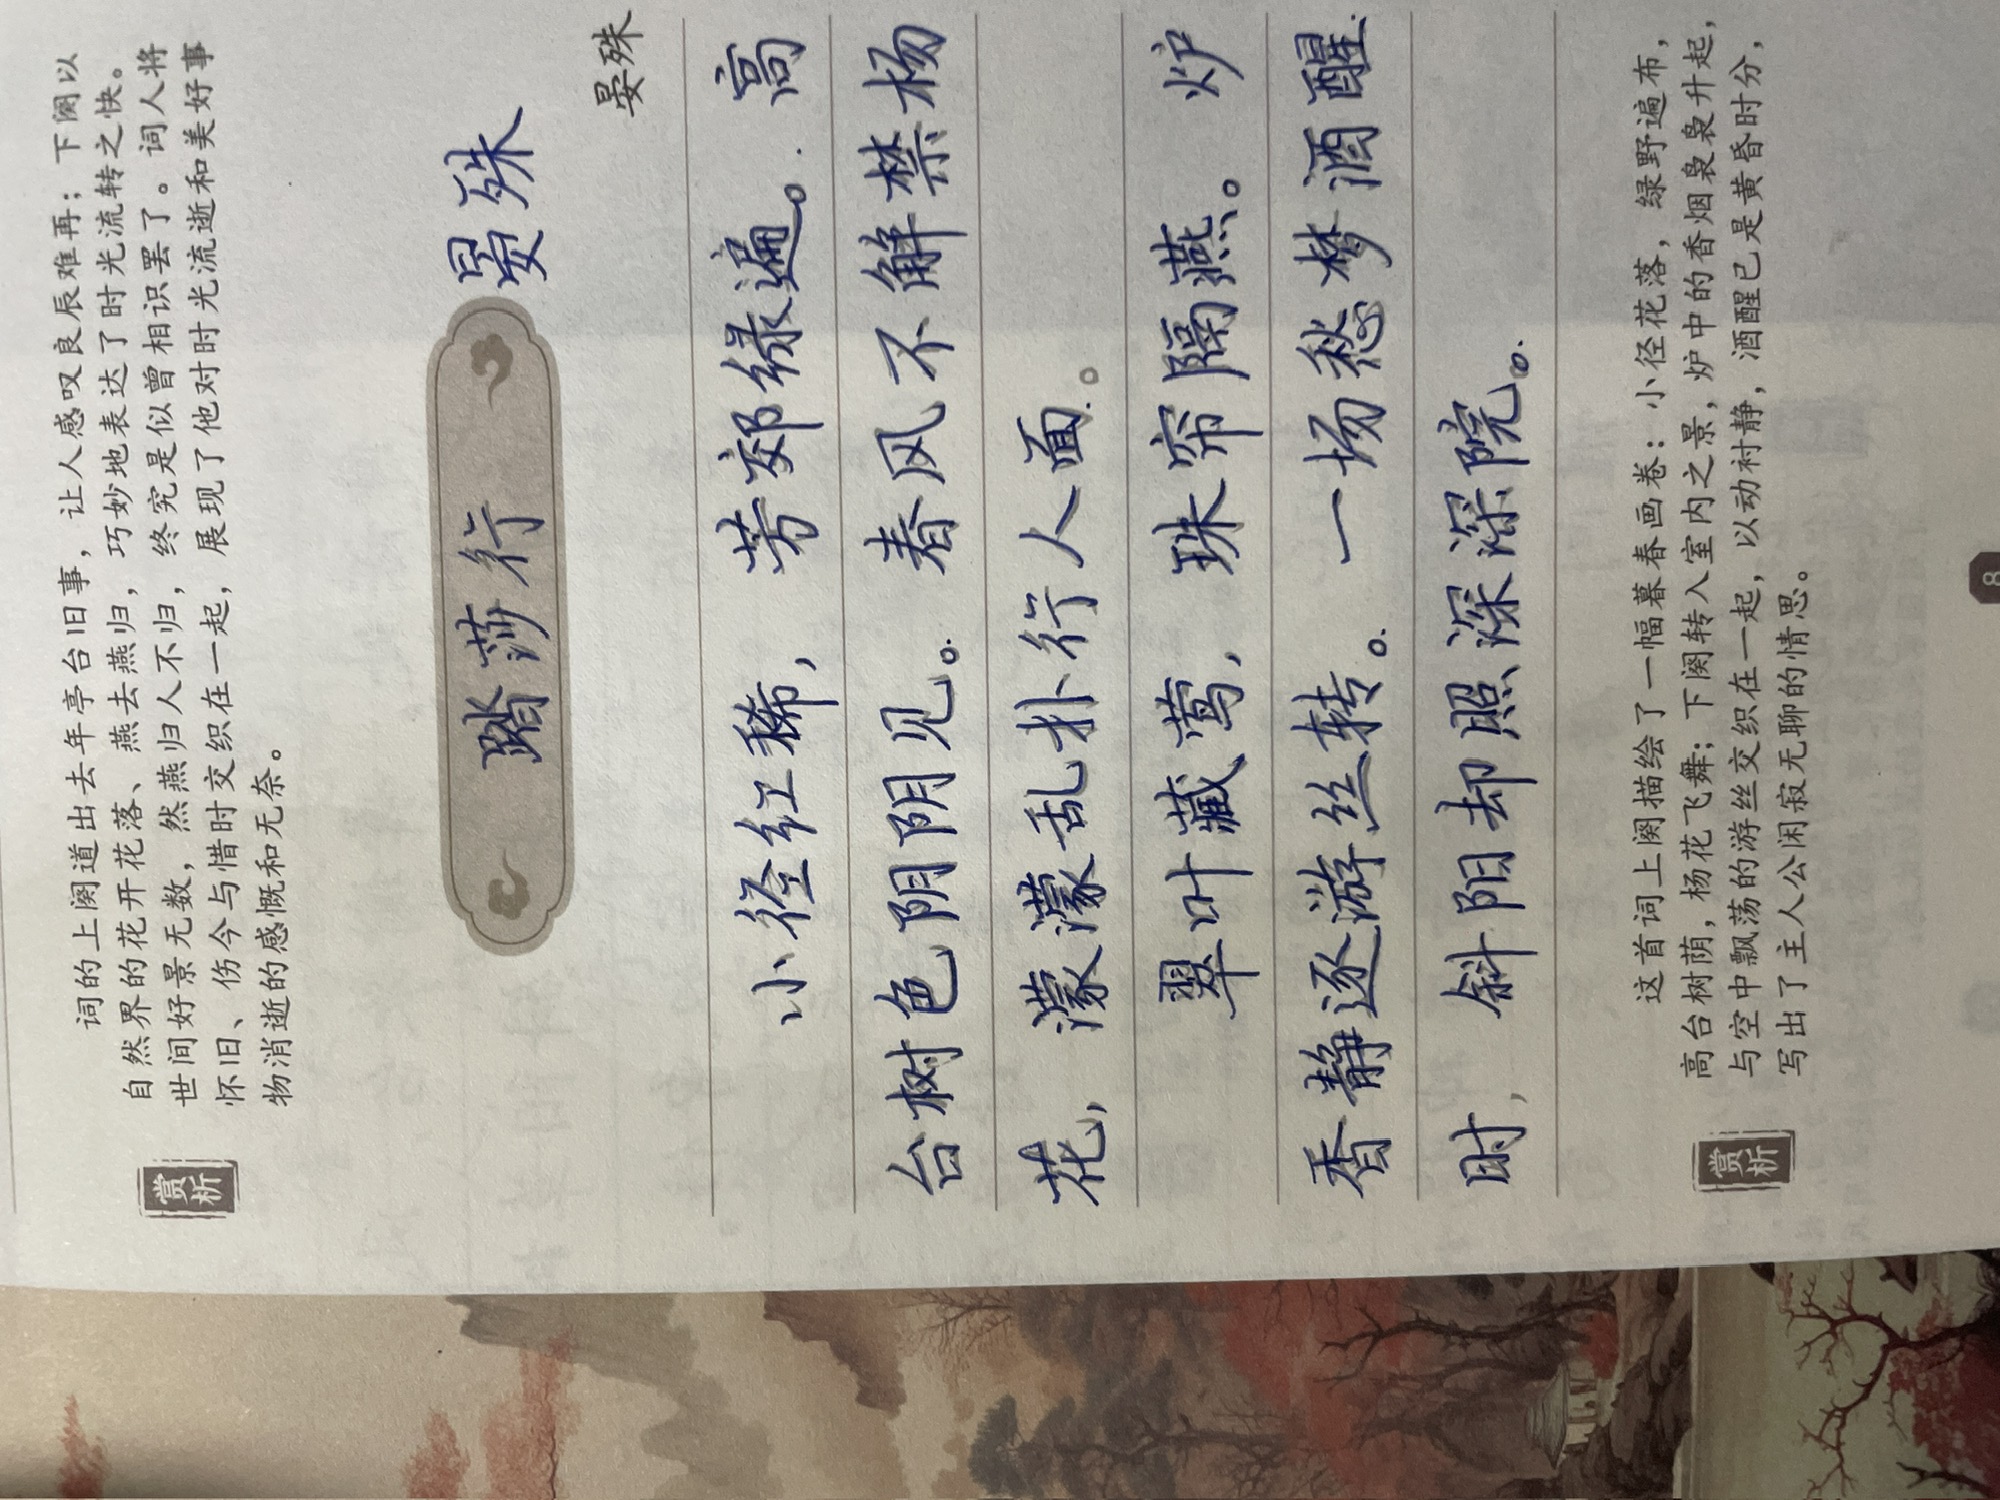 词的上阕道出去年亭台旧事，让人感叹良辰难再；下阕以
自然界的花开花落、燕去燕归，巧妙地表达了时光流转之快。
世间好景无数，然燕归人不归，终究是似曾相识罢了。词人将
怀旧、伤今与惜时交织在一起，展现了他对时光流逝和美好事
物消逝的感慨和无奈。
赏析
踏莎行 晏殊
晏殊
小径红稀，芳郊绿遍。高
台树色阴阴见。春风不解禁杨
花，濛濛乱扑行人面。
翠叶藏莺，珠帘隔燕。炉
香静逐游丝转。一场愁梦酒醒
时，斜阳却照深深院。
这首词上阕描绘了一幅暮春画卷：小径花落，绿野遍布，
高台树荫，杨花飞舞；下阕转入室内之景，炉中的香烟袅袅升起，
与空中飘荡的游丝交织在一起，以动衬静，酒醒已是黄昏时分，
写出了主人公闲寂无聊的情思。
赏析
8